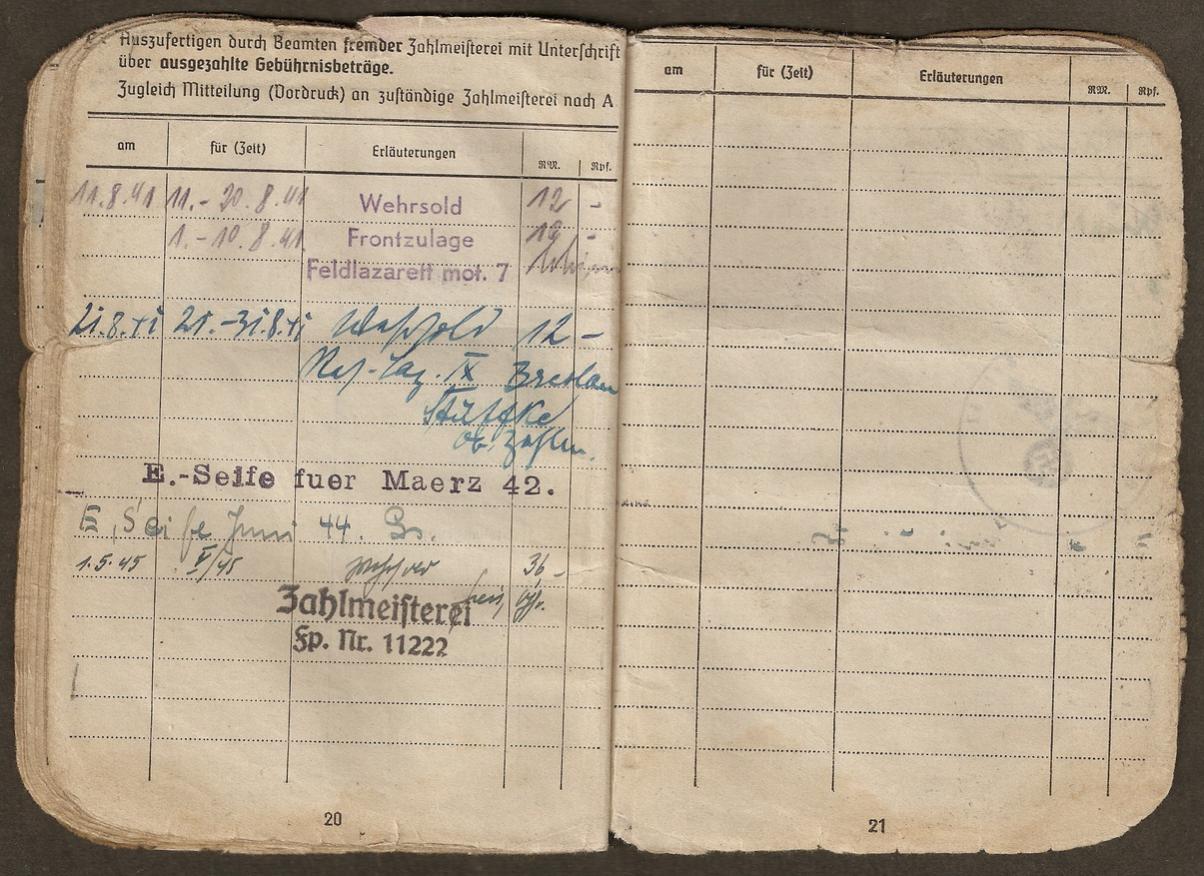 Auszufertigen durch Beamten fremder Zahlmeisterei mit Unterschrift
über ausgezahlte Gebührnisbeträge.
Zugleich Mitteilung (Vordruck) an zuständige Zahlmeisterei nach A
am für (Zeit) Erläuterungen RM. Rpf.
11.8.41 11.-20.8.41 Wehrsold 12 -
1.-10.8.41 Frontzulage -
Feldlazarett mot. 7
21.8.41 21.-31.8.41 Wehrsold 12 -
Res.-Laz. IX Breslau
Ob. Zahlm.
E.-Seife fuer Maerz 42.
E, Seife Juni 44.
1.5.45 V/45 36,-
Zahlmeisterei
Fp. Nr. 11222
20
am für (Zeit) Erläuterungen RM. Rpf.
21